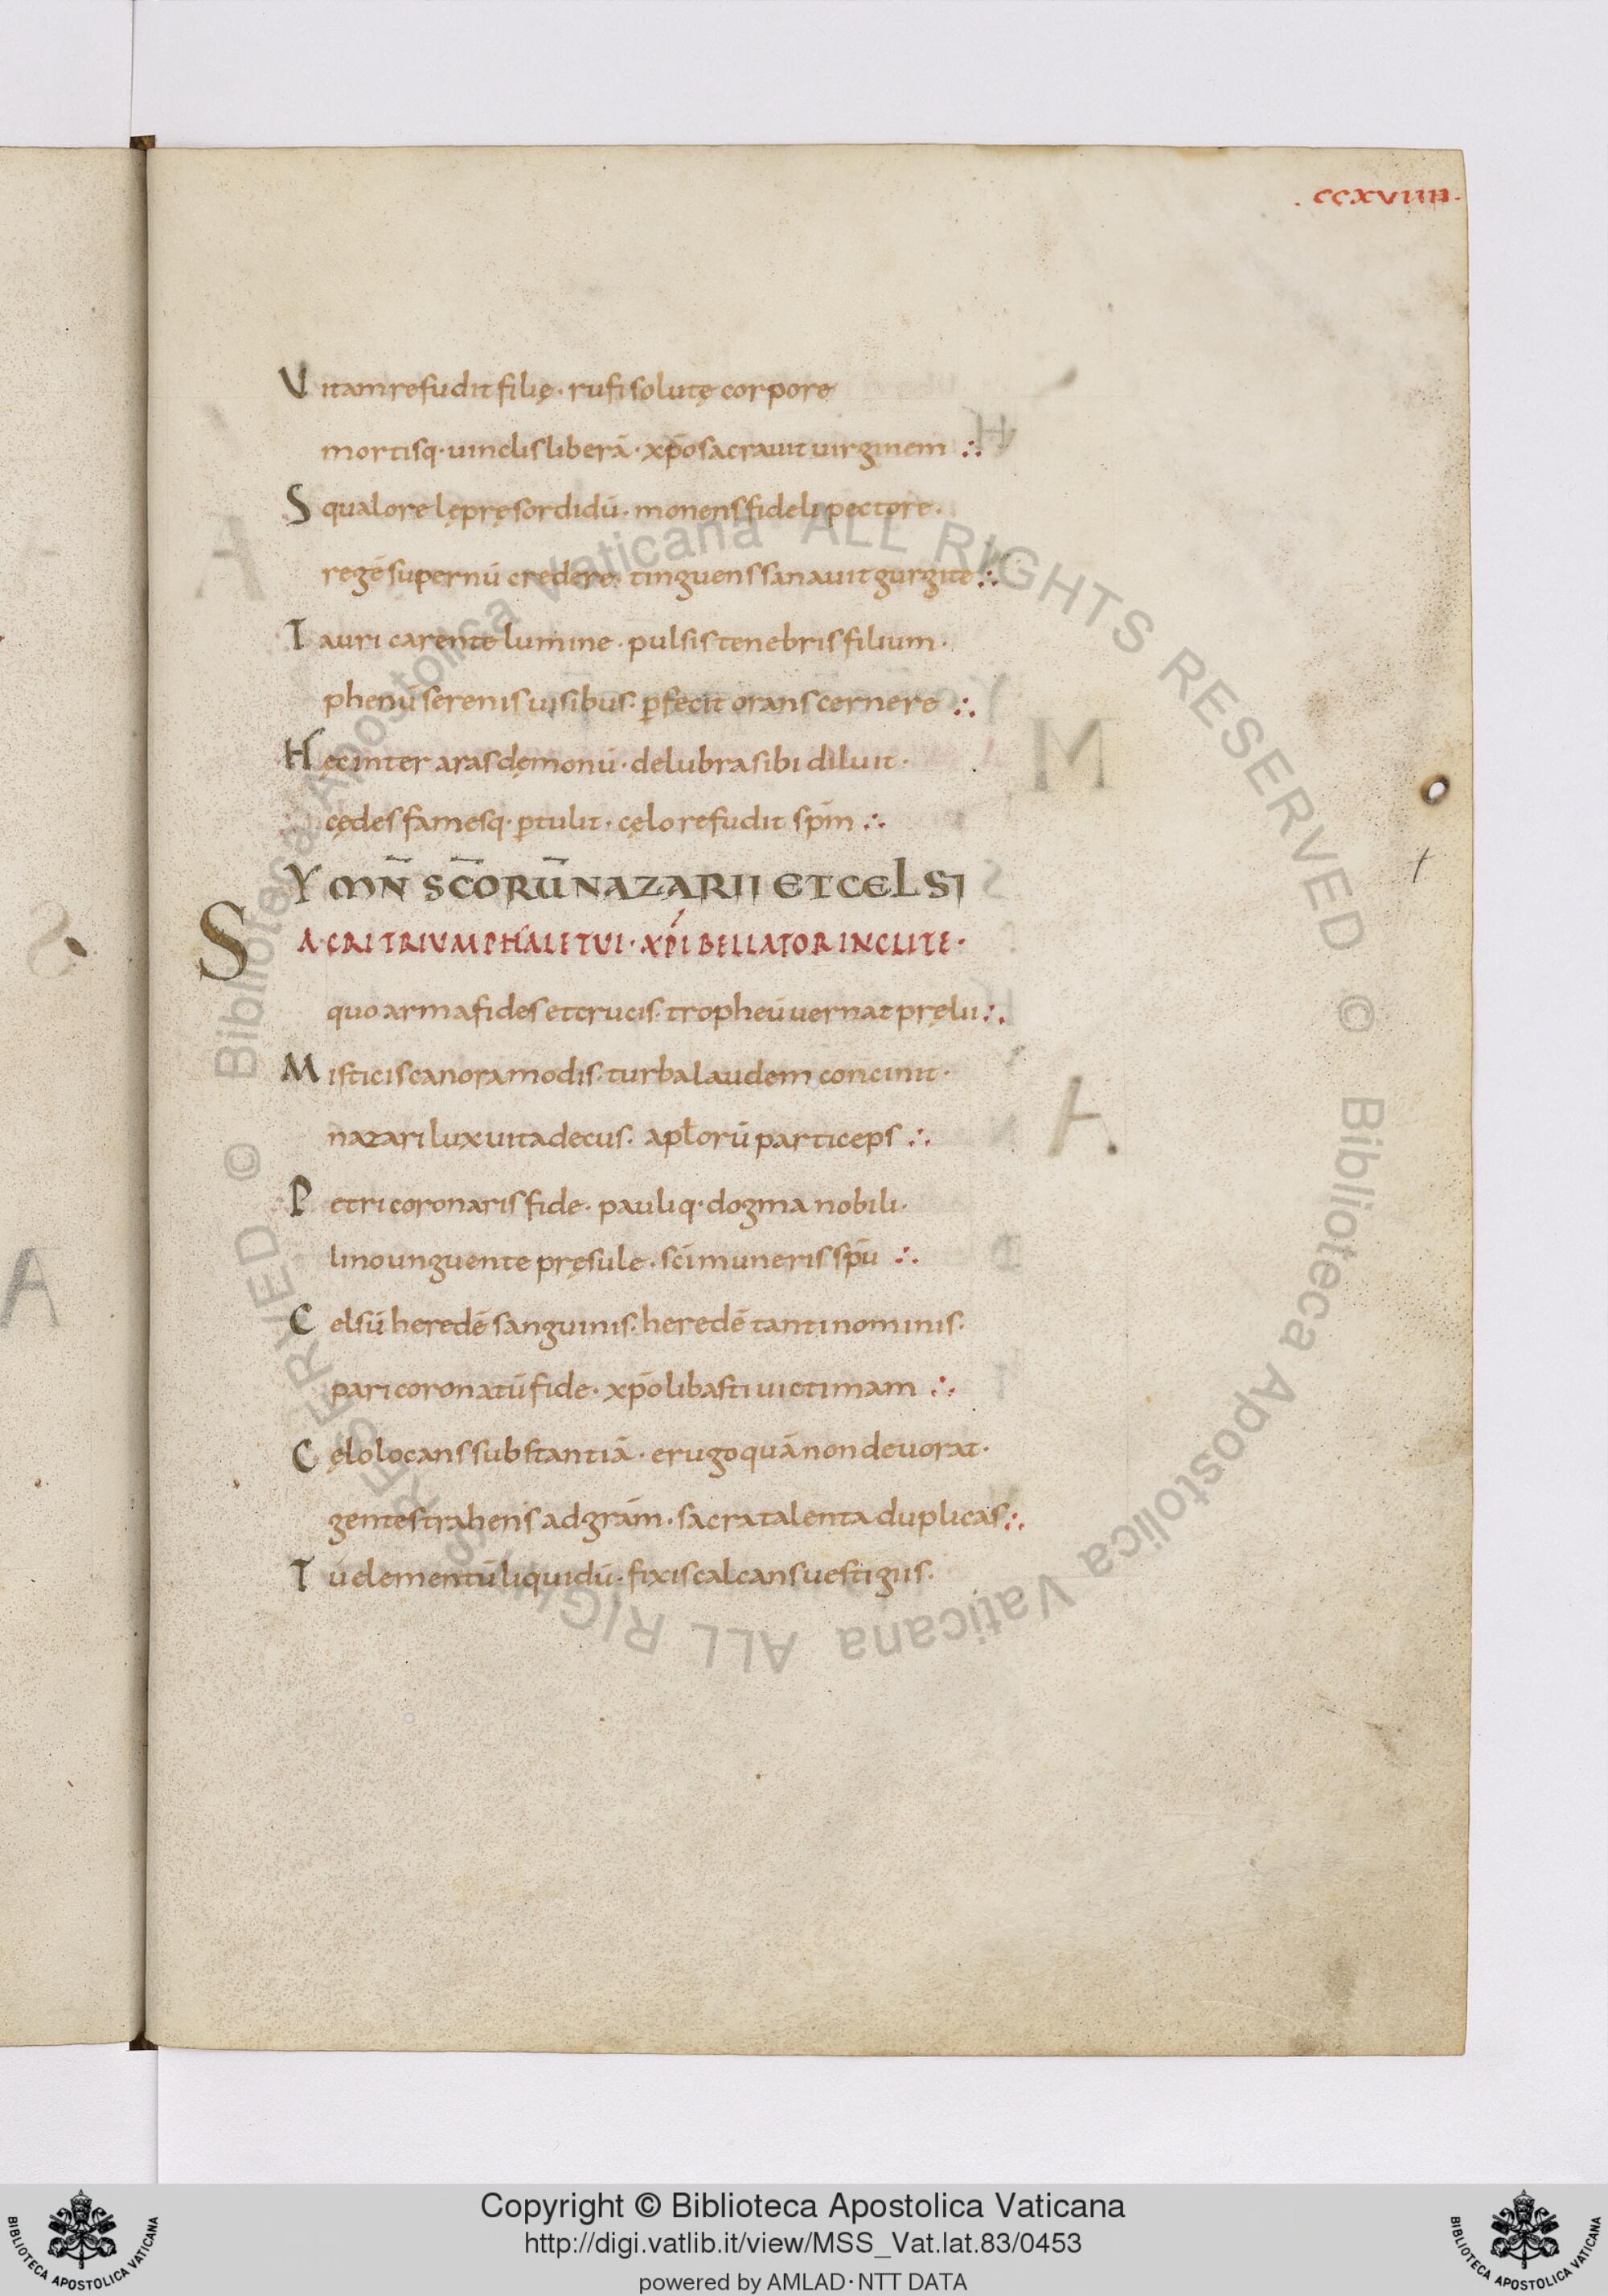 .CCXVIIII.
Vitam refudit filię · rufi solutę corpore
mortisq· uinclis liberā · xp̄o sacrauit uirginem ∴
Squalore lęprę sordidū · monens fideli pectore ·
regē supernū credere · tinguens sanauit gurgite ∴
Tauri carente lumine · pulsis tenebris filium ·
phenū serenis uisibus · ꝑfecit orans cernere ∴
Hęc inter aras dęmonū · delubra sibi diluit ·
cędes famesq· ꝑtulit · cęlo refudit sp̄m ∴
YMN̄ SC̄ORŪ NAZARII ET CELSI
SACRI TRIVMPHALE TUI · XP̄I BELLATOR INCLITE ·
quo arma fides et crucis · tropheū uernat pręlii ∴
Misticis canora modis · turba laudem concinit ·
nazari lux uita decus · apł̄orū particeps ∴
Petri coronaris fide · pauliq· dogma nobili ·
lino unguente pręsule · sc̄i muneris sp̄u ∴
Celsū heredē sanguinis · heredē tanti nominis ·
pari coronatū fide · xp̄o libasti uictimam ∴
Cęlo locans substantiā · erugo quā non deuorat ·
gentes trahens ad grām · sacra talenta duplicas ∴
Tu elementū liquidū · fixis calcans uestigiis ·
© Biblioteca Apostolica Vaticana ALL RIGHTS RESERVED © Biblioteca Apostolica Vaticana ALL RIGHTS RESERVED
Copyright © Biblioteca Apostolica Vaticana
http://digi.vatlib.it/view/MSS_Vat.lat.83/0453
powered by AMLAD·NTT DATA
BIBLIOTECA APOSTOLICA VATICANA
BIBLIOTECA APOSTOLICA VATICANA